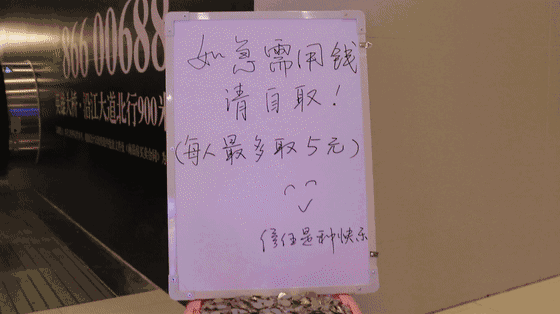 866 00688
大桥·沿江大道北行900米
如急需用钱
请自取!
(每人最多取5元)
信任是种快乐